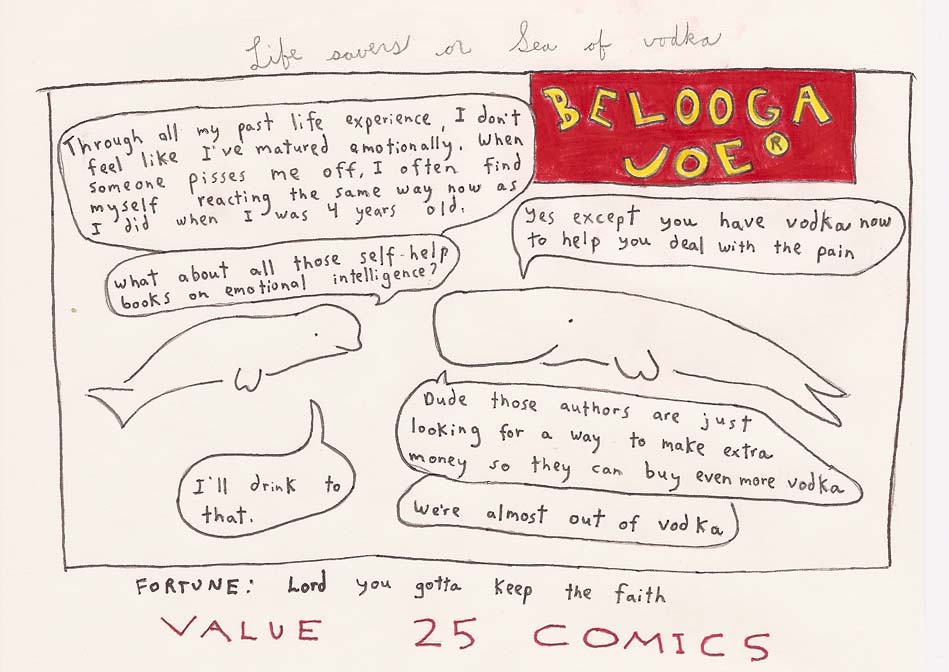 Life savers or Sea of vodka
BELOOGA
JOE®
Through all my past life experience, I don't
feel like I've matured emotionally. When
someone pisses me off, I often find
myself reacting the same way now as
I did when I was 4 years old.
Yes except you have vodka now
to help you deal with the pain
What about all those self-help
books on emotional intelligence?
Dude those authors are just
looking for a way to make extra
money so they can buy even more vodka
I'll drink to
that.
We're almost out of vodka
FORTUNE: Lord you gotta keep the faith
VALUE 25 COMICS